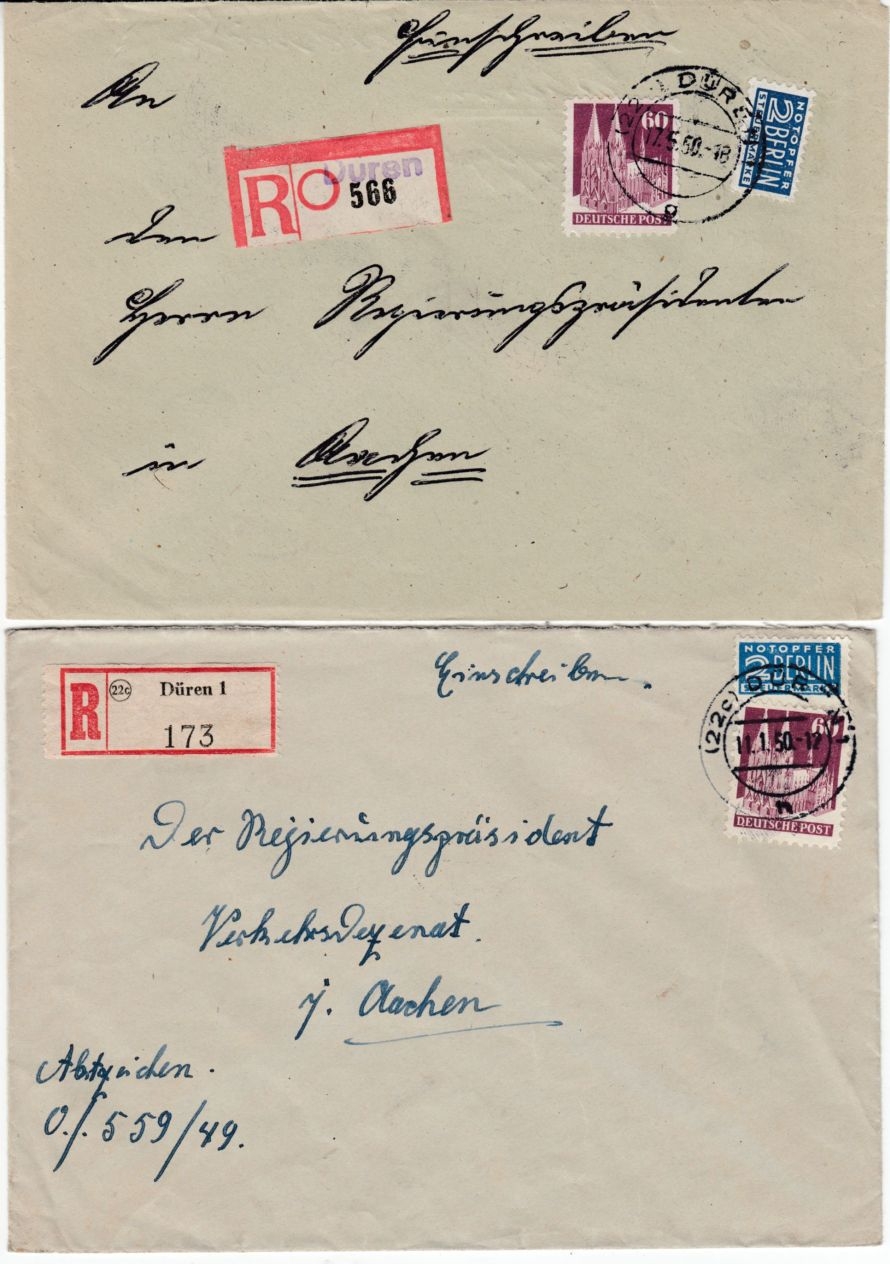 Einschreiben
An
R Düren 566
60
DEUTSCHE POST
(22c) DÜREN
17.5.50.-18
g
NOTOPFER
2 BERLIN
STEUERMARKE
den
Herrn Regierungspräsidenten
in Aachen
R 22c Düren 1
173
Einschreiben.
NOTOPFER
2 BERLIN
STEUERMARKE
(22c) DÜREN
11.1.50.-12
60
DEUTSCHE POST
Der Regierungspräsident
Verkehrsdezenat.
i. Aachen
O./. 559/49.